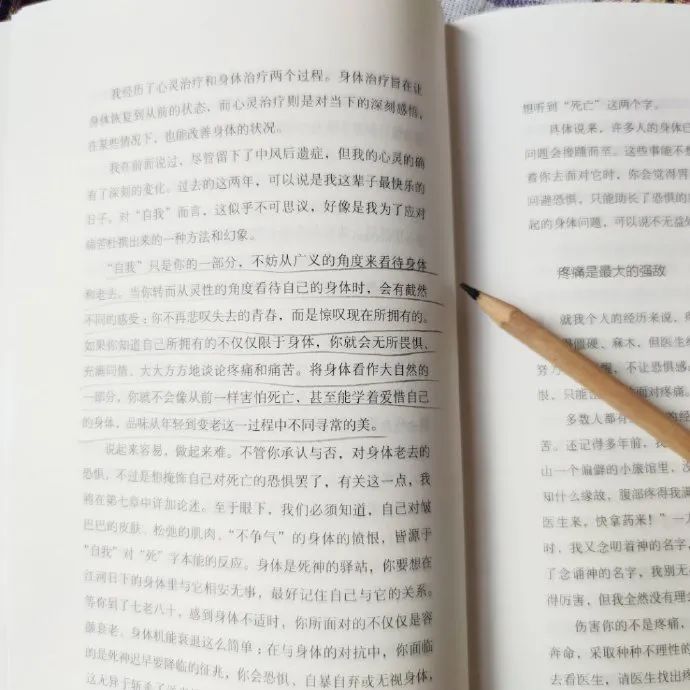 我经历了心灵治疗和身体治疗两个过程。身体治疗旨在让
身体恢复到从前的状态，而心灵治疗则是对当下的深刻感悟，
在某些情况下，也能改善身体的状况。
我在前面说过，尽管留下了中风后遗症，但我的心灵的确
有了深刻的变化。过去的这两年，可以说是我这辈子最快乐的
日子。对“自我”而言，这似乎不可思议，好像是我为了应对
痛苦杜撰出来的一种方法和幻象。
“自我”只是你的一部分，不妨从广义的角度来看待身体
和老去。当你转而从灵性的角度看待自己的身体时，会有截然
不同的感受：你不再悲叹失去的青春，而是惊叹现在所拥有的。
如果你知道自己所拥有的不仅仅限于身体，你就会无所畏惧、
充满同情、大大方方地谈论疼痛和痛苦。将身体看作大自然的
一部分，你就不会像从前一样害怕死亡，甚至能学着爱惜自己
的身体，品味从年轻到变老这一过程中不同寻常的美。
说起来容易，做起来难。不管你承认与否，对身体老去的
恐惧，不过是想掩饰自己对死亡的恐惧罢了，有关这一点，我
将在第七章中详加论述。至于眼下，我们必须知道，自己对皱
巴巴的皮肤、松弛的肌肉、“不争气”的身体的愤恨，皆源于
“自我”对“死”字本能的反应。身体是死神的驿站，你要想在
江河日下的身体里与它相安无事，最好记住自己与它的关系。
等你到了七老八十，感到身体不适时，你所面对的不仅仅是容
颜衰老、身体机能衰退这么简单：在与身体的对抗中，你面临
的是死神迟早要降临的征兆，你会恐惧、自暴自弃或无视身体，
这无异于斩杀了
想听到“死亡”这两个字。
具体说来，许多人的身体已
问题会接踵而至。这些事能不想
着你去面对它时，你会觉得胃
问避恐惧，只能助长了恐惧的
起的身体问题，可以说不无益处
疼痛是最大的强敌
就我个人的经历来说，疼
得僵硬、麻木，但医生
努力 醒，不让恐惧感
恨，只能 面对疼痛。
多数人都有
苦。还记得多年前，我
山一个偏僻的小旅馆里，没
知什么缘故，腹部疼得我满
医生来，快拿药来！”一
时，我又念叨着神的名字，
了念诵神的名字，我别无
得厉害，但我全然没有理
伤害你的不是疼痛，
奔命，采取种种不理性的
去看医生，请医生找出